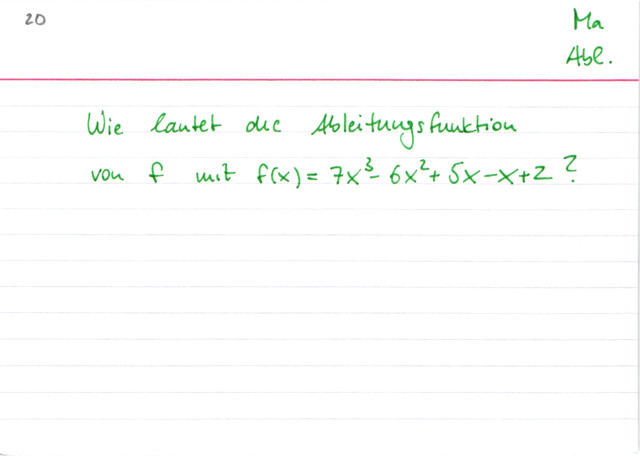 20
Ma
Abl.
Wie lautet die Ableitungsfunktion
von f mit f(x) = 7x³ - 6x² + 5x - x + 2 ?